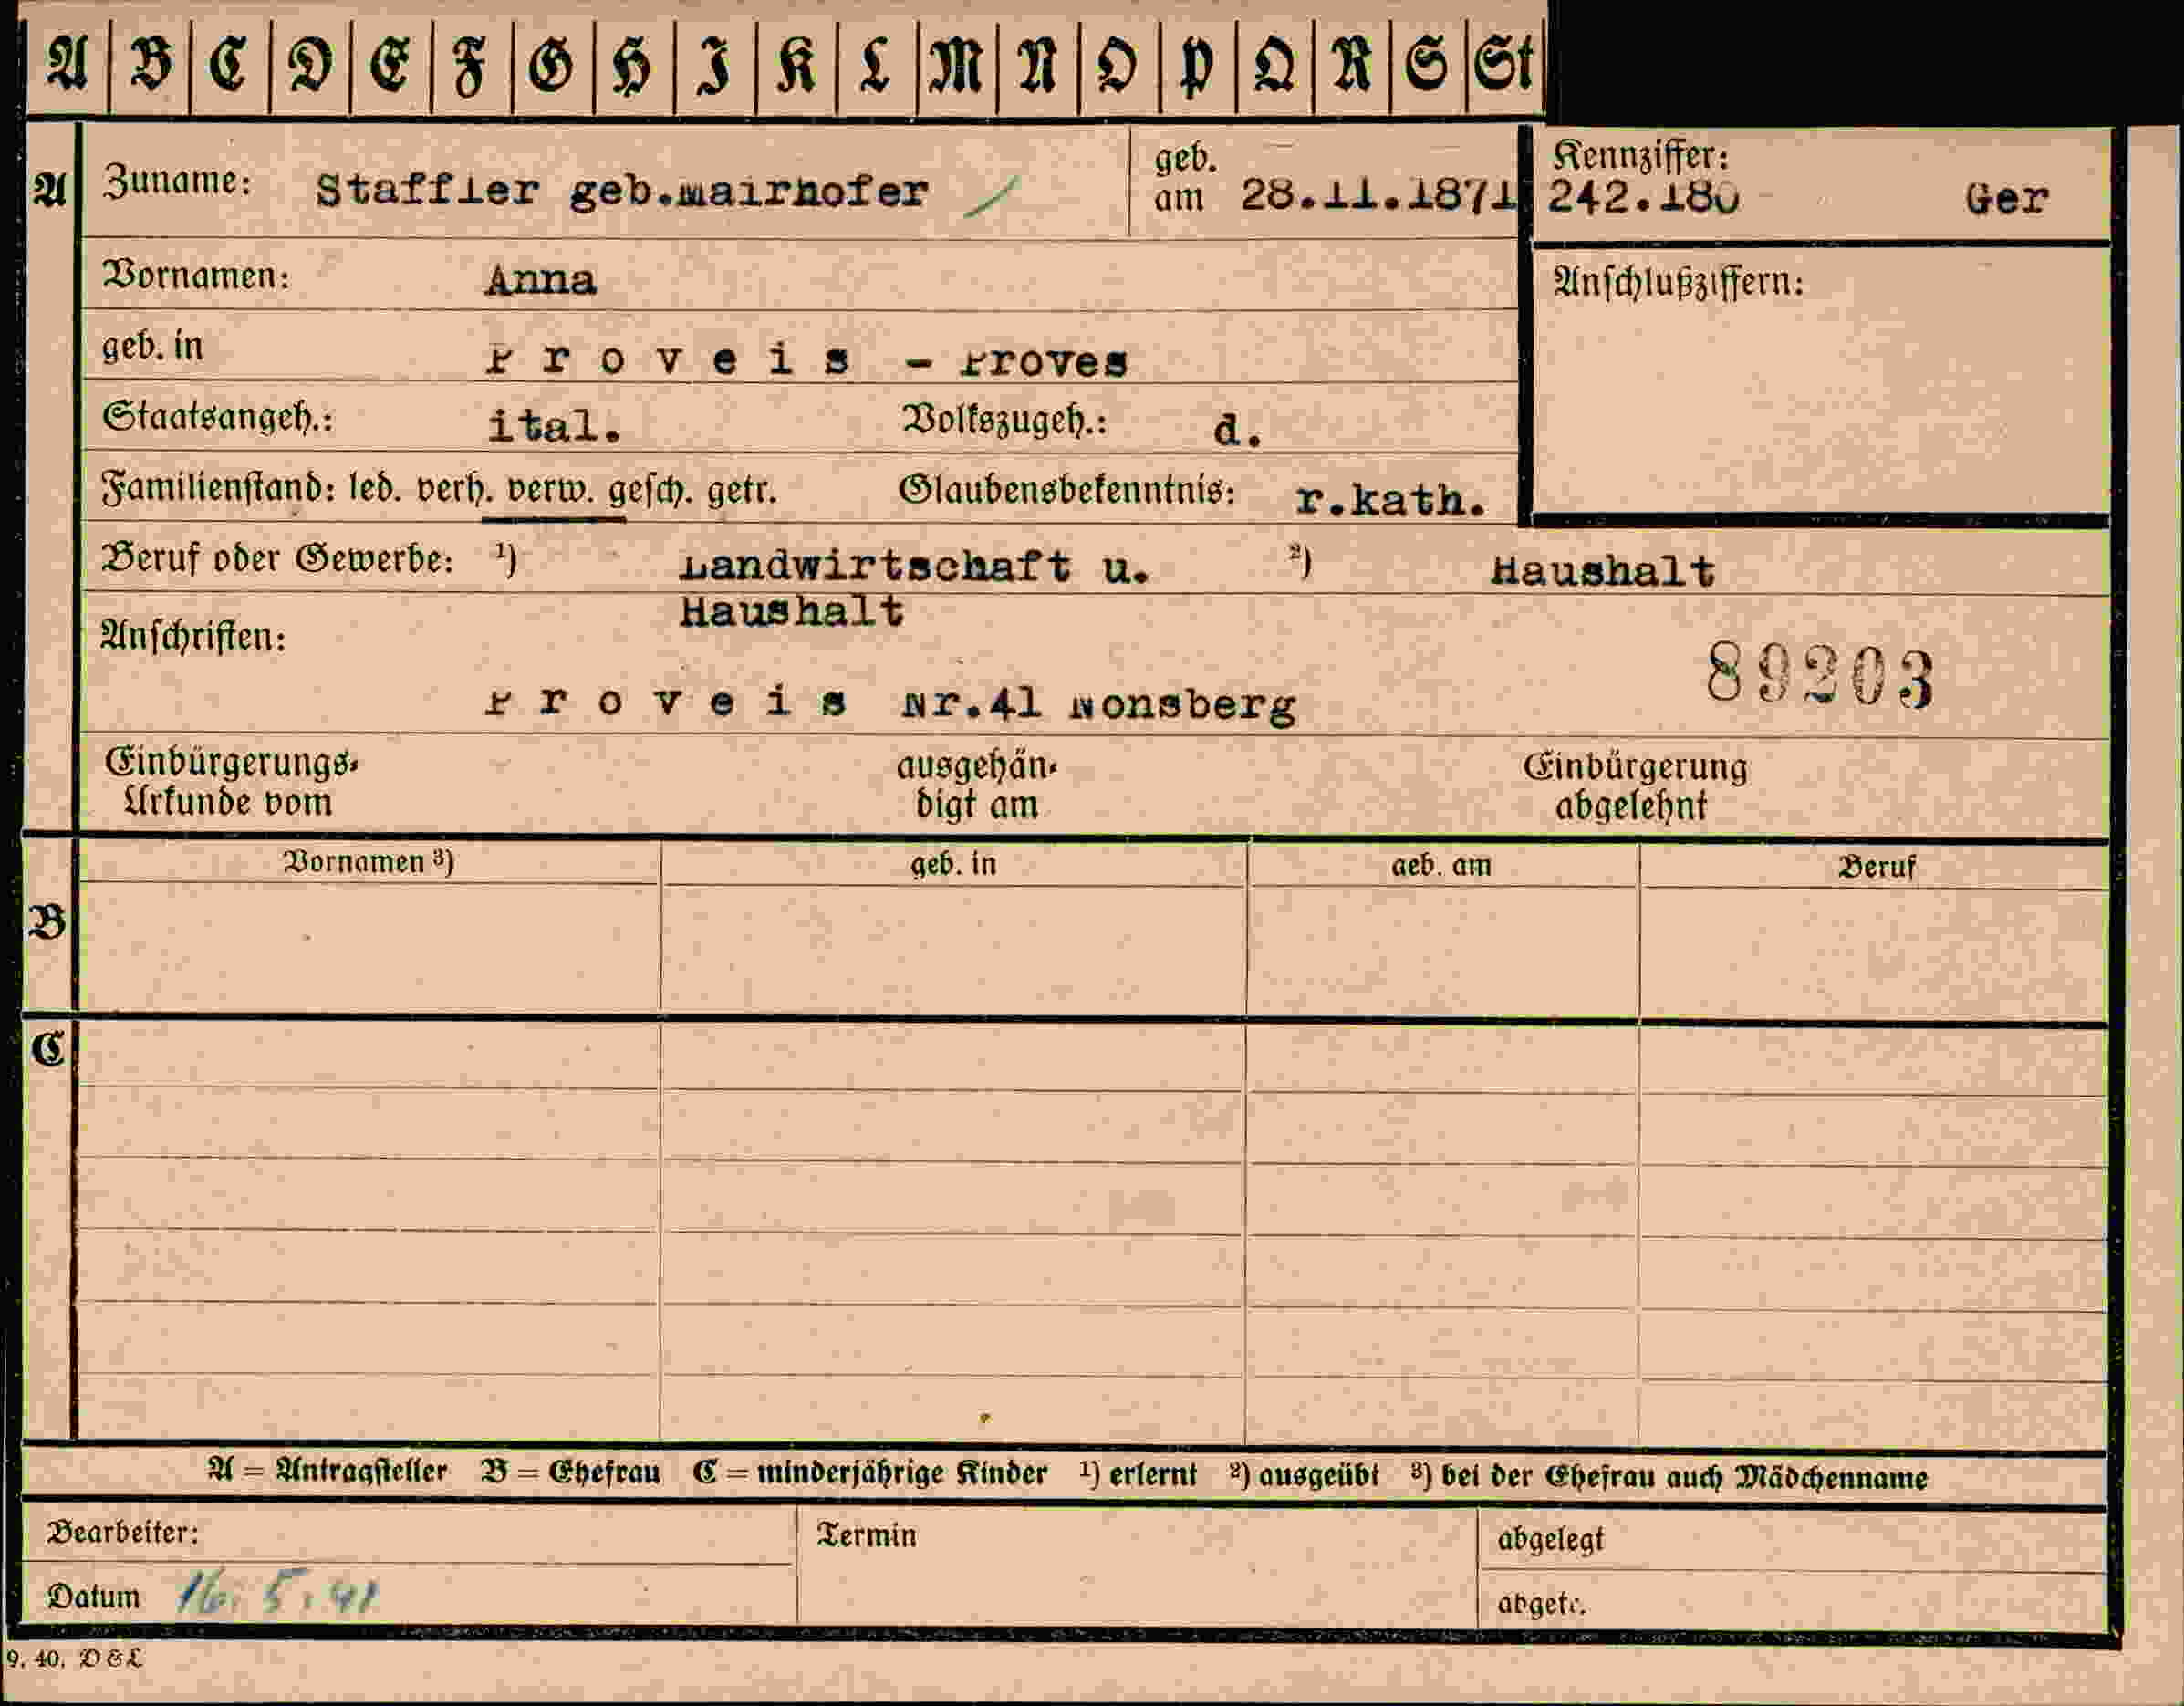 A B C D E F G H I K L M N O P Q R S St
A Zuname: Staffler geb.Mairhofer geb. am 28.11.1871 Kennziffer: 242.180 Ger
Vornamen: Anna Anschlußziffern:
geb. in P r o v e i s - Proves
Staatsangeh.: ital. Volkszugeh.: d.
Familienstand: led. verh. verw. gesch. getr. Glaubensbekenntnis: r.kath.
Beruf oder Gewerbe: ¹) Landwirtschaft u. ²) Haushalt
Haushalt
Anschriften:
89203
P r o v e i s Nr.41 Nonsberg
Einbürgerungs- ausgehän- Einbürgerung
Urkunde vom digt am abgelehnt
Vornamen ³) geb. in geb. am Beruf
B
C
A = Antragsteller B = Ehefrau C = minderjährige Kinder ¹) erlernt ²) ausgeübt ³) bei der Ehefrau auch Mädchenname
Bearbeiter: Termin abgelegt
Datum 16. 5. 41 abgetr.
9. 40. D & L